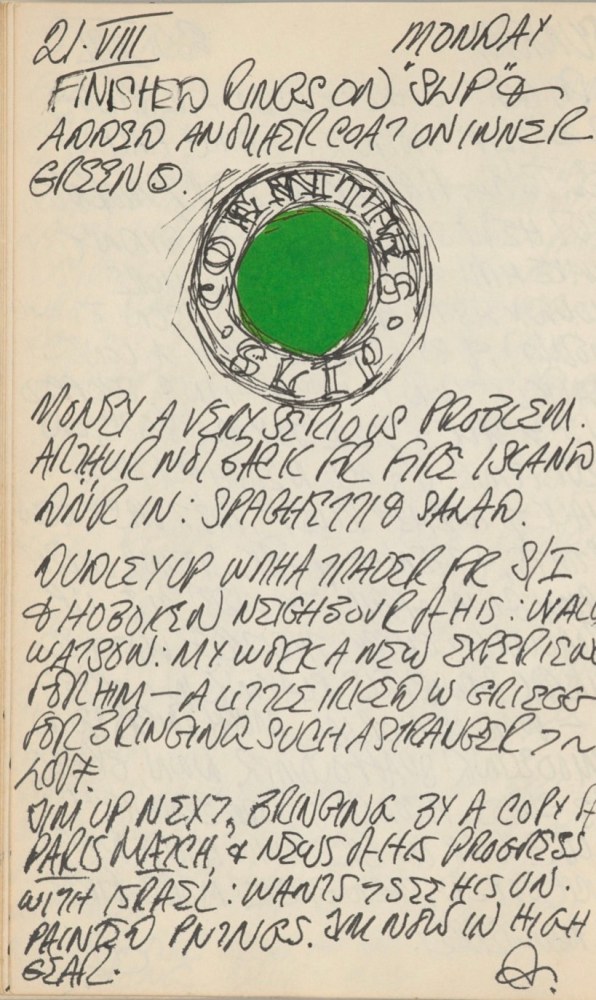 21·VIII MONDAY
FINISHED RINGS ON "SLIP" &
ADDED ANOTHER COAT ON INNER
GREEN ⑤.
COENTIES
· SLIP ·
MONEY A VERY SERIOUS PROBLEM.
ARTHUR NOT BACK FR FIRE ISLAND
DNR IN: SPAGHETTI & SALAD.
DUDLEY UP WITH A TRADER FR S/I
& HOBOKEN NEIGHBOUR OF HIS: WALLY
WATSON: MY WORK A NEW EXPERIENCE
FOR HIM — A LITTLE IRKED W GRIEGG
FOR BRINGING SUCH A STRANGER TO
LOFT.
JIM UP NEXT, BRINGING BY A COPY OF
PARIS MATCH, & NEWS OF HIS PROGRESS
WITH ISRAEL: WANTS TO SEE HIS UN·
PAINTED PNTNGS. JIM NOW IN HIGH
GEAR.